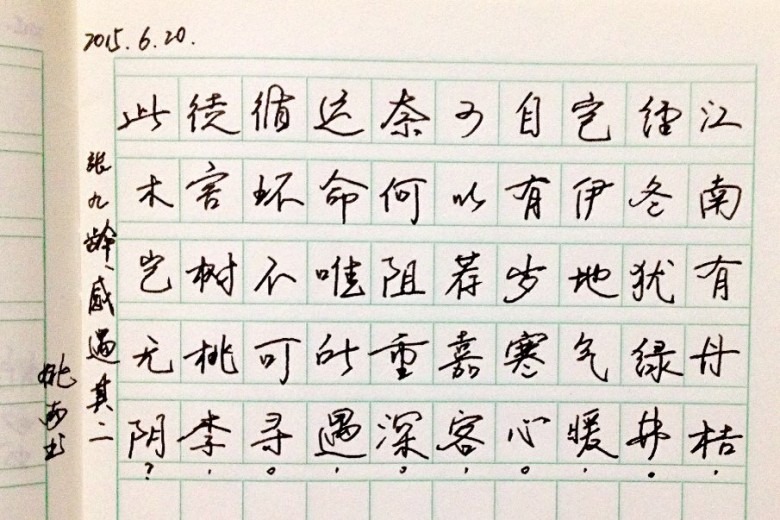 2015.6.20.
江南有丹桔，
经冬犹绿林。
岂伊地气暖，
自有岁寒心。
可以荐嘉客，
奈何阻重深。
运命唯所遇，
循环不可寻。
徒言树桃李，
此木岂无阴？
張九龄、感遇其二